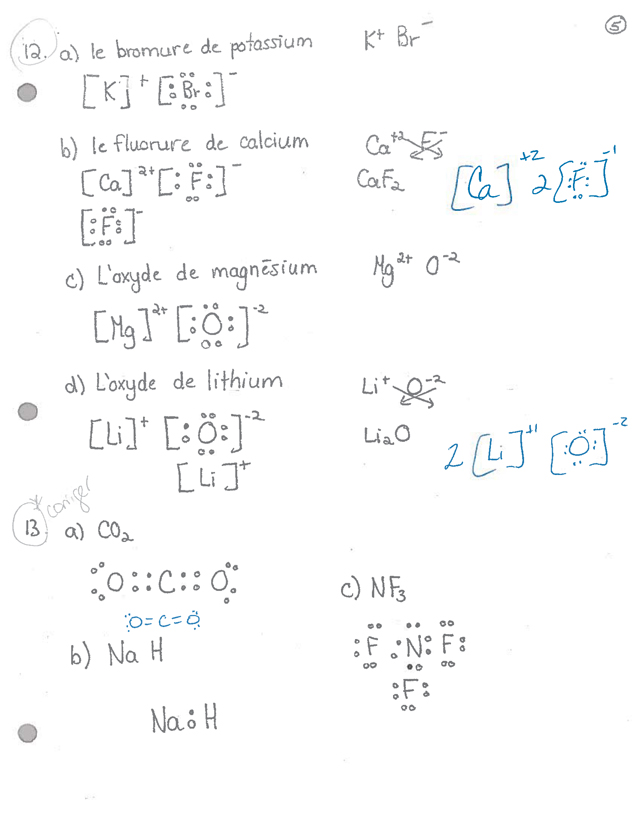 5
12. a) le bromure de potassium K⁺ Br⁻
[K]⁺ [:Br:]⁻
b) le fluorure de calcium Ca⁺² F⁻
[Ca]²⁺ [:F:]⁻ CaF₂ [Ca]⁺² 2[:F:]⁻¹
[:F:]⁻
c) L'oxyde de magnésium Mg²⁺ O⁻²
[Mg]²⁺ [:O:]⁻²
d) L'oxyde de lithium Li⁺ O⁻²
[Li]⁺ [:O:]⁻² Li₂O 2[Li]⁺¹ [:O:]⁻²
[Li]⁺
* corriger
13. a) CO₂
:O::C::O:
:O=C=O:
b) Na H
Na:H
c) NF₃
:F:N:F:
:F: